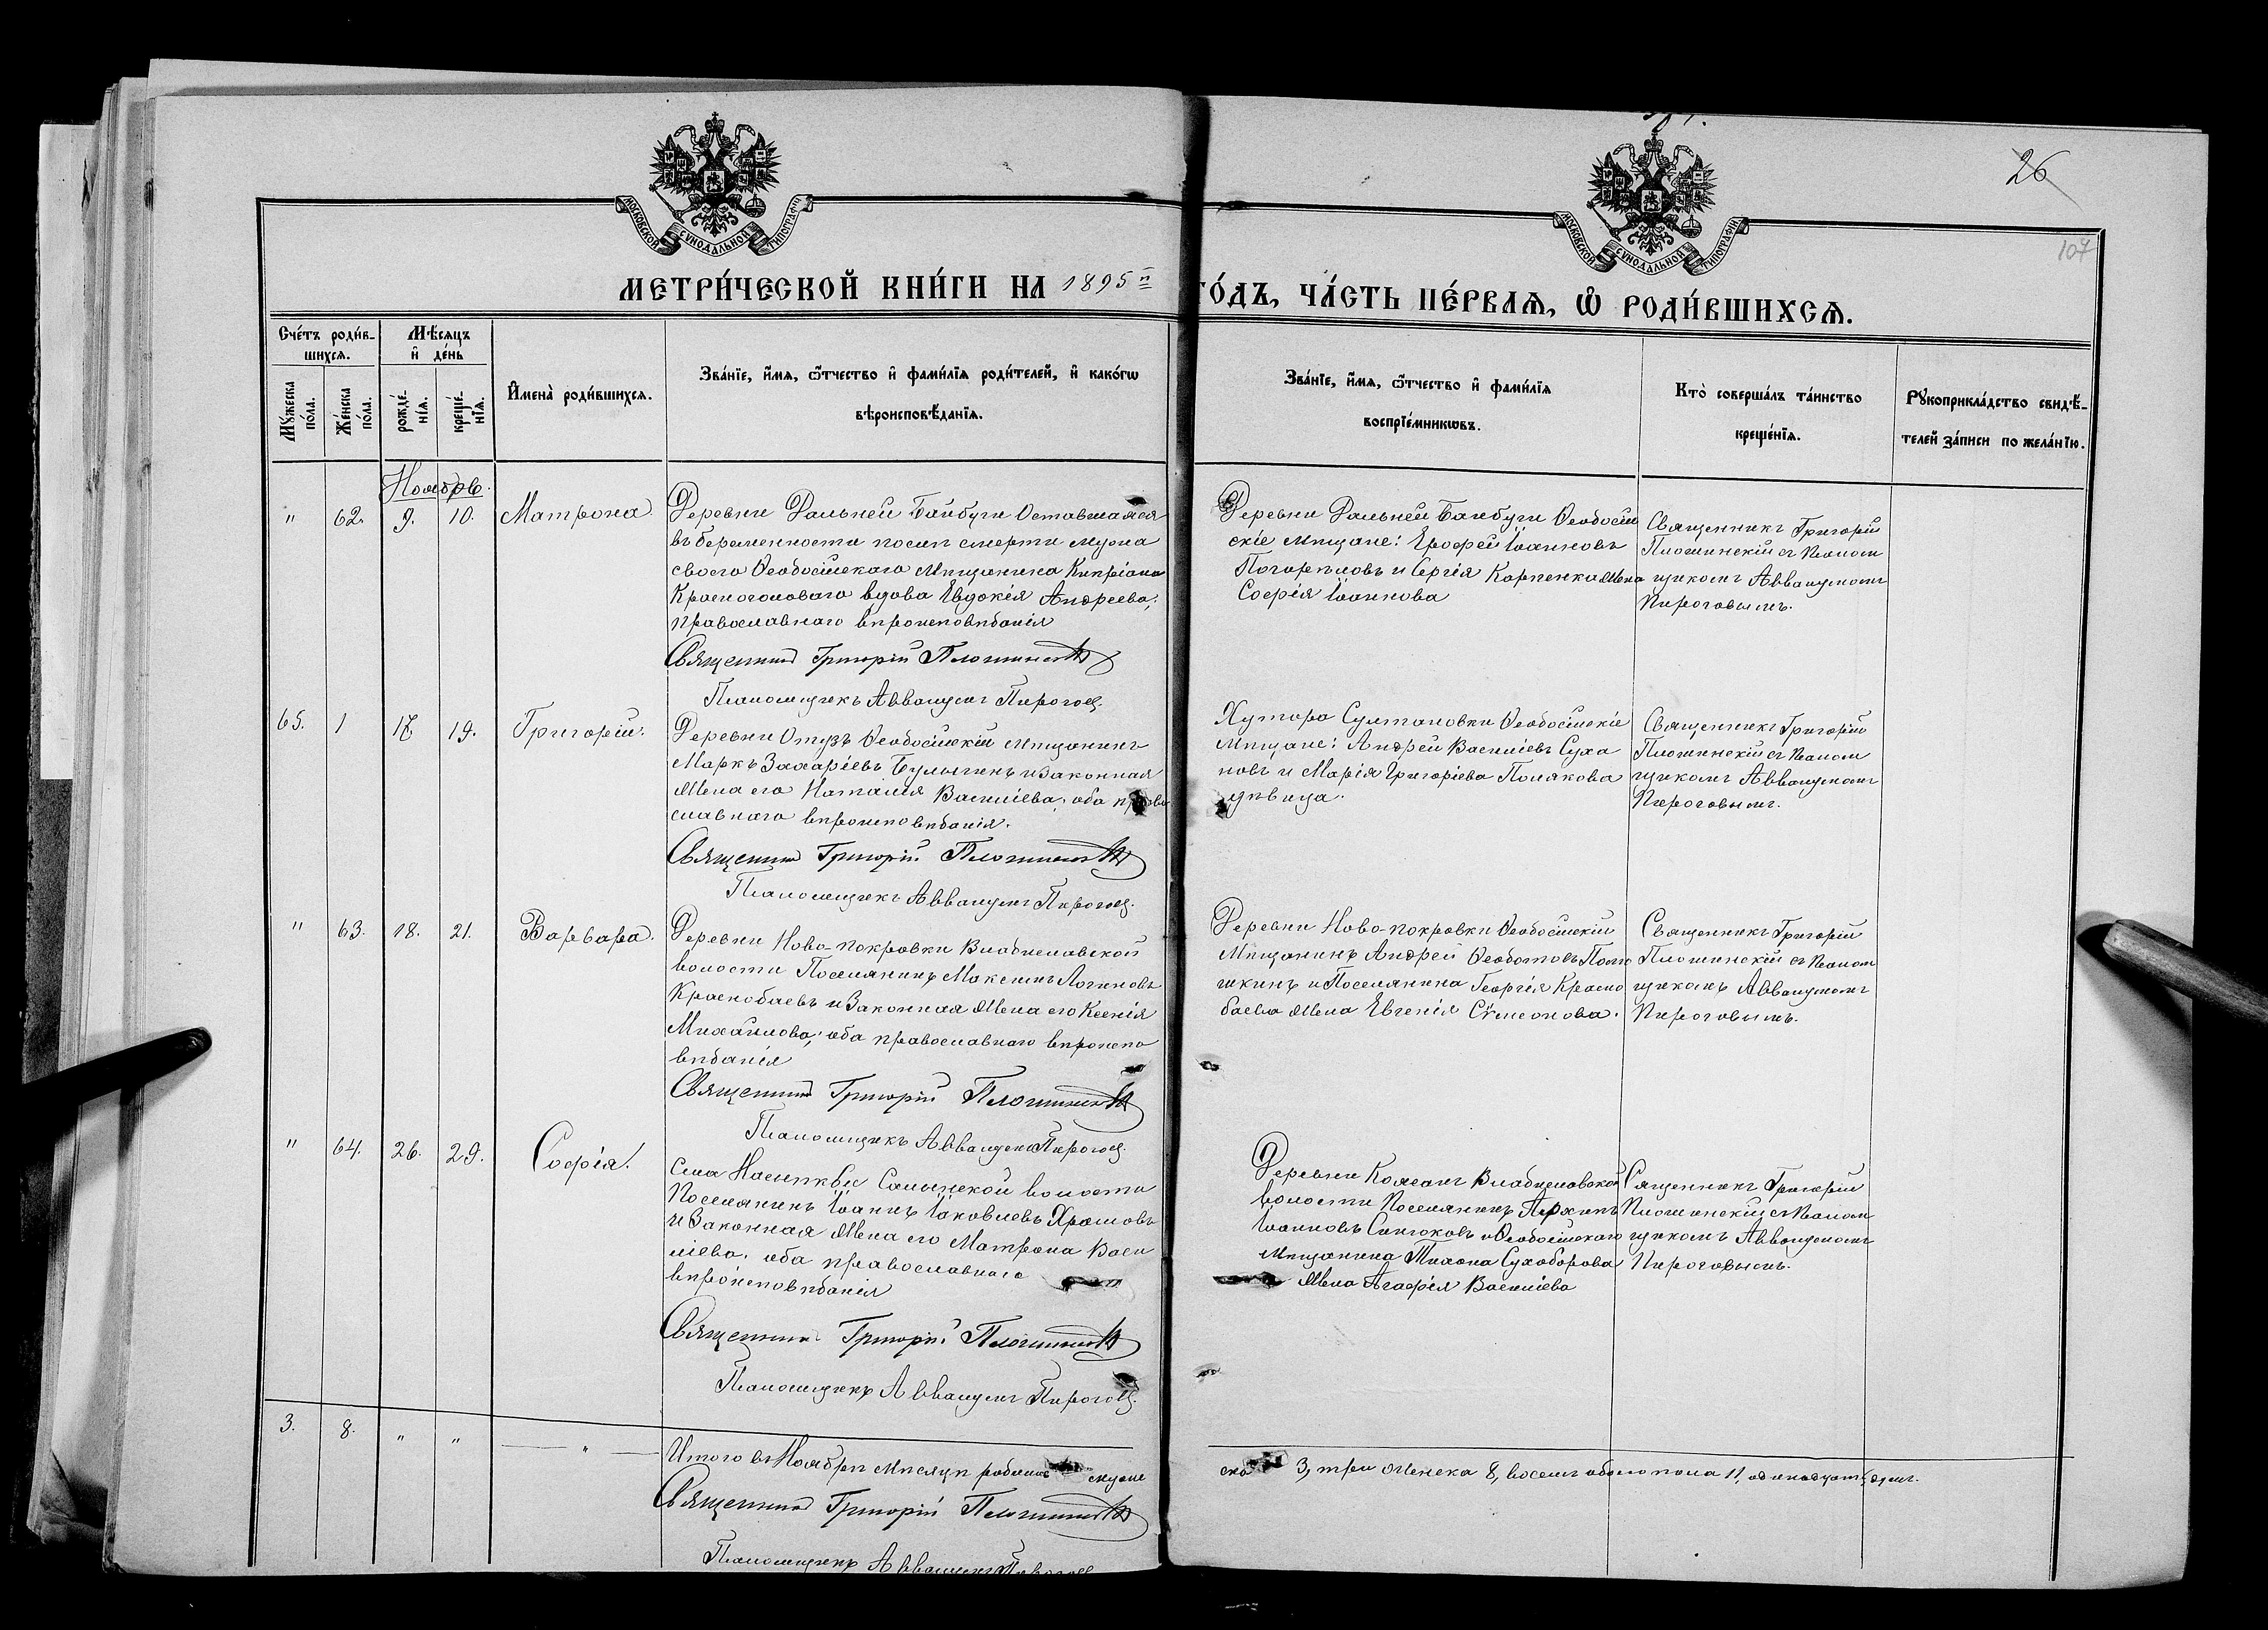 26
107
МОСКОВСКОЙ СѴНОДАЛЬНОЙ ТИПОГРАФІИ
МОСКОВСКОЙ СѴНОДАЛЬНОЙ ТИПОГРАФІИ
МЕТРИ́ЧЕСКОЙ КНИ́ГИ НА 1895й ГО́ДЪ, ЧА́СТЬ ПЕ́РВАѦ, Ѽ РОДИ́ВШИХСѦ.
Сче́тъ роди́в-
шихсѧ.
Мѣ́сяцъ
и҆ де́нь
Мꙋ́жеска по́ла.
Же́нска по́ла.
рожде́нїѧ.
креще́нїѧ.
И҆мена̀ роди́вшихсѧ.
Зва́нїе, и҆́мѧ, ѻ҆́тчество и҆ фами́лїѧ роди́телей, и҆ како́гѡ
вѣроисповѣ́данїѧ.
Зва́нїе, и҆́мѧ, ѻ҆́тчество и҆ фами́лїѧ
воспрїе́мникѡвъ.
Кто̀ соверша́лъ та́инство
креще́нїѧ.
Рꙋкоприкла́дство свидѣ́-
телей за́писи по жела́нїю.
Ноябрь.
" 62. 9. 10. Матрона
Деревни Дальней Байбуги Оставшаяся
въ беременности послѣ смерти мужа
своего Ѳеодосійскаго Мѣщанина Кипріана
Красноголоваго вдова Евдокія Андреева;
православнаго вѣроисповѣданія
Священникъ Григорій
Псаломщикъ Аввакумъ Пироговъ.
Деревни Дальней Байбуги Ѳеодосій
скіе мѣщане: Ерофей Іоанновъ
Погорѣловъ и Сергія Карпенка жена
Софія Іоаннова
Священникъ Григорій
съ Псалом
щикомъ Аввакумомъ
Пироговымъ.
65. 1 17. 19. Григорій.
Деревни Отузъ Ѳеодосійскій мѣщанинъ
Маркъ Захаріевъ Булыгинъ и законная
жена его Наталія Василіева; оба право
славнаго вѣроисповѣданія.
Священникъ Григорій
Псаломщикъ Аввакумъ Пироговъ.
Хутора Султановки Ѳеодосійскіе
мѣщане: Андрей Василіевъ Суха
новъ и Марія Григоріева Полякова
дѣвица.
Священникъ Григорій
съ Псалом
щикомъ Аввакумомъ
Пироговымъ.
" 63. 18. 21. Варвара.
Деревни Ново-покровки Владиславской
волости Поселянинъ Максимъ Логиновъ
Краснобаевъ и Законная жена его Ксенія
Михайлова; оба православнаго вѣроиспо
вѣданія
Священникъ Григорій
Псаломщикъ Аввакумъ Пироговъ.
Деревни Ново-покровки Ѳеодосійскій
Мѣщанинъ Андрей Ѳеодотовъ
и Поселянина Георгія Красно
баева жена Евгенія Сѵмеонова.
Священникъ Григорій
съ Псалом
щикомъ Аввакумомъ
Пироговымъ.
" 64. 26. 29. Софія.
Села Насыпкоя Салынской волости
Поселянинъ Іоаннъ Іаковлевъ Храмовъ
и Законная жена его Матрона Васи
ліева; оба православнаго
вѣроисповѣданія
Священникъ Григорій
Псаломщикъ Аввакумъ Пироговъ.
Деревни Владиславской
волости Поселянинъ Архипъ
Іоанновъ и Ѳеодосійскаго
Мѣщанина Тихона Сухоборова
жена Агафія Василіева
Священникъ Григорій
съ Псалом
щикомъ Аввакумомъ
Пироговымъ.
3. 8. " " "
Итого въ Ноябрѣ мѣсяцѣ родилось муже
ска 3, три женска 8, восемь обоего пола 11, одинадцать душъ.
Священникъ Григорій
Псаломщикъ Аввакумъ Пироговъ